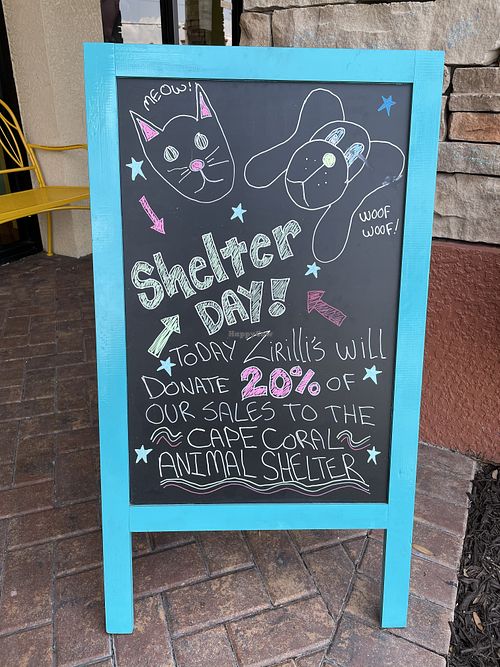 MEOW!
WOOF
WOOF!
Shelter
DAY!
TODAY Lirilli's WILL
DONATE 20% OF
OUR SALES TO THE
CAPE CORAL
ANIMAL SHELTER